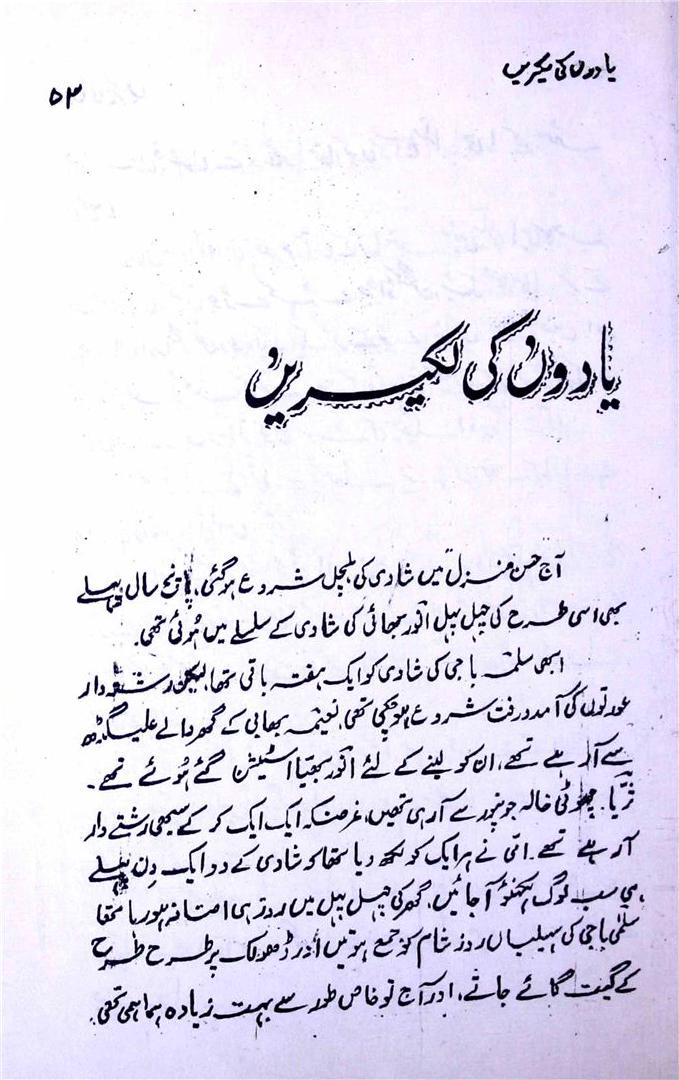 یادوں کی لکیریں
۵۳
یادوں کی لکیریں
آج حسن منزل میں شادی کی ہلچل شروع ہوگئی، پانچ سال پہلے
بھی اسی طرح کی چہل پہل انور بھائی کی شادی کے سلسلے میں ہوئی تھی۔
ابھی سلمہ باجی کی شادی کو ایک ہفتہ باقی تھا، لیکن رشتہ دار
عورتوں کی آمد و رفت شروع ہو چکی تھی، نعیمہ بھابی کے گھر والے علیگڑھ
سے آ رہے تھے، ان کو لینے کے لئے انور بھیا اسٹیشن گئے ہوئے تھے۔
ثریا۔ چھوٹی خالہ جونپور سے آ رہی تھیں، غرضکہ ایک ایک کر کے سبھی رشتے دار
آ رہے تھے۔ امی نے ہر ایک کو لکھ دیا تھا کہ شادی کے دو ایک دن پہلے
ہی سب لوگ لکھنؤ آ جائیں، گھر کی چہل پہل میں روز ہی اضافہ ہو رہا تھا
سلمٰی باجی کی سہیلیاں روز شام کو جمع ہوتیں اور ڈھولک پر طرح طرح
کے گیت گائے جاتے، اور آج تو خاص طور سے بہت زیادہ ہماہمی تھی۔